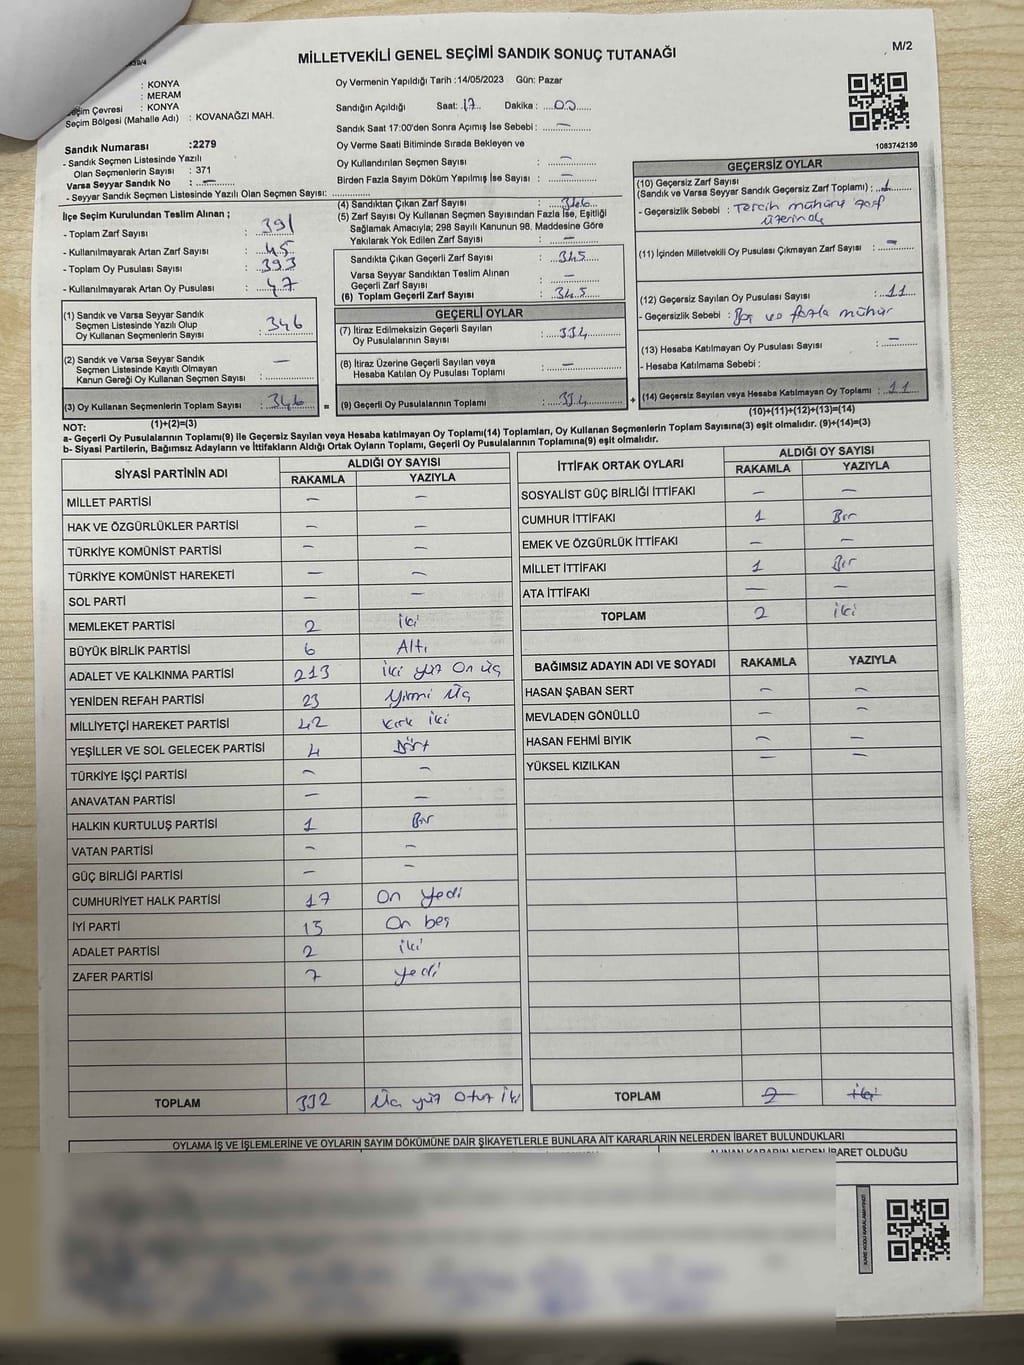 MİLLETVEKİLİ GENEL SEÇİMİ SANDIK SONUÇ TUTANAĞI
M/2
: KONYA
: MERAM
Seçim Çevresi : KONYA
Seçim Bölgesi (Mahalle Adı) : KOVANAĞZI MAH.
Oy Vermenin Yapıldığı Tarih :14/05/2023 Gün: Pazar
Sandığın Açıldığı Saat: 17 Dakika : 00
Sandık Saat 17:00'den Sonra Açımış İse Sebebi : —
Oy Verme Saati Bitiminde Sırada Bekleyen ve
Oy Kullandırılan Seçmen Sayısı : —
Birden Fazla Sayım Döküm Yapılmış İse Sayısı : —
1083742136
Sandık Numarası :2279
- Sandık Seçmen Listesinde Yazılı
Olan Seçmenlerin Sayısı : 371
Varsa Seyyar Sandık No : —
- Seyyar Sandık Seçmen Listesinde Yazılı Olan Seçmen Sayısı:
İlçe Seçim Kurulundan Teslim Alınan ;
- Toplam Zarf Sayısı : 391
- Kullanılmayarak Artan Zarf Sayısı : 45
- Toplam Oy Pusulası Sayısı : 393
- Kullanılmayarak Artan Oy Pusulası : 47
(1) Sandık ve Varsa Seyyar Sandık
Seçmen Listesinde Yazılı Olup
Oy Kullanan Seçmenlerin Sayısı : 346
(2) Sandık ve Varsa Seyyar Sandık
Seçmen Listesinde Kayıtlı Olmayan
Kanun Gereği Oy Kullanan Seçmen Sayısı : —
(3) Oy Kullanan Seçmenlerin Toplam Sayısı : 346
(1)+(2)=(3)
(4) Sandıktan Çıkan Zarf Sayısı : 346
(5) Zarf Sayısı Oy Kullanan Seçmen Sayısından Fazla İse, Eşitliği
Sağlamak Amacıyla; 298 Sayılı Kanunun 98. Maddesine Göre
Yakılarak Yok Edilen Zarf Sayısı : —
Sandıkta Çıkan Geçerli Zarf Sayısı : 345
Varsa Seyyar Sandıktan Teslim Alınan
Geçerli Zarf Sayısı : —
(6) Toplam Geçerli Zarf Sayısı : 345
GEÇERLİ OYLAR
(7) İtiraz Edilmeksizin Geçerli Sayılan
Oy Pusulalarının Sayısı : 334
(8) İtiraz Üzerine Geçerli Sayılan veya
Hesaba Katılan Oy Pusulası Toplamı : —
=
(9) Geçerli Oy Pusulalarının Toplamı : 334
+
GEÇERSİZ OYLAR
(10) Geçersiz Zarf Sayısı
(Sandık ve Varsa Seyyar Sandık Geçersiz Zarf Toplamı) : 1
- Geçersizlik Sebebi : Tercih mührü zarf
üzerinde
(11) İçinden Milletvekili Oy Pusulası Çıkmayan Zarf Sayısı : —
(12) Geçersiz Sayılan Oy Pusulası Sayısı : 11
- Geçersizlik Sebebi : Boş ve fazla mühür
(13) Hesaba Katılmayan Oy Pusulası Sayısı : —
- Hesaba Katılmama Sebebi :
(14) Geçersiz Sayılan veya Hesaba Katılmayan Oy Toplamı : 11
(10)+(11)+(12)+(13)=(14)
NOT:
a- Geçerli Oy Pusulalarının Toplamı(9) ile Geçersiz Sayılan veya Hesaba katılmayan Oy Toplamı(14) Toplamları, Oy Kullanan Seçmenlerin Toplam Sayısına(3) eşit olmalıdır. (9)+(14)=(3)
b- Siyasi Partilerin, Bağımsız Adayların ve İttifakların Aldığı Ortak Oyların Toplamı, Geçerli Oy Pusulalarının Toplamına(9) eşit olmalıdır.
SİYASİ PARTİNİN ADI ALDIĞI OY SAYISI
RAKAMLA YAZIYLA
MİLLET PARTİSİ — —
HAK VE ÖZGÜRLÜKLER PARTİSİ — —
TÜRKİYE KOMÜNİST PARTİSİ — —
TÜRKİYE KOMÜNİST HAREKETİ — —
SOL PARTİ — —
MEMLEKET PARTİSİ 2 iki
BÜYÜK BİRLİK PARTİSİ 6 Altı
ADALET VE KALKINMA PARTİSİ 213 iki yüz On üç
YENİDEN REFAH PARTİSİ 23 Yirmi Üç
MİLLİYETÇİ HAREKET PARTİSİ 42 kırk iki
YEŞİLLER VE SOL GELECEK PARTİSİ 4 Dört
TÜRKİYE İŞÇİ PARTİSİ — —
ANAVATAN PARTİSİ — —
HALKIN KURTULUŞ PARTİSİ 1 Bir
VATAN PARTİSİ — —
GÜÇ BİRLİĞİ PARTİSİ — —
CUMHURİYET HALK PARTİSİ 17 On yedi
İYİ PARTİ 15 On beş
ADALET PARTİSİ 2 iki
ZAFER PARTİSİ 7 yedi
TOPLAM 332 Üç yüz Otuz İki
İTTİFAK ORTAK OYLARI ALDIĞI OY SAYISI
RAKAMLA YAZIYLA
SOSYALİST GÜÇ BİRLİĞİ İTTİFAKI — —
CUMHUR İTTİFAKI 1 Bir
EMEK VE ÖZGÜRLÜK İTTİFAKI — —
MİLLET İTTİFAKI 1 Bir
ATA İTTİFAKI — —
TOPLAM 2 iki
BAĞIMSIZ ADAYIN ADI VE SOYADI RAKAMLA YAZIYLA
HASAN ŞABAN SERT — —
MEVLADEN GÖNÜLLÜ — —
HASAN FEHMİ BIYIK — —
YÜKSEL KIZILKAN — —
TOPLAM 2 iki
OYLAMA İŞ VE İŞLEMLERİNE VE OYLARIN SAYIM DÖKÜMÜNE DAİR ŞİKAYETLERLE BUNLARA AİT KARARLARIN NELERDEN İBARET BULUNDUKLARI
ALINAN KARARIN NEDEN İBARET OLDUĞU